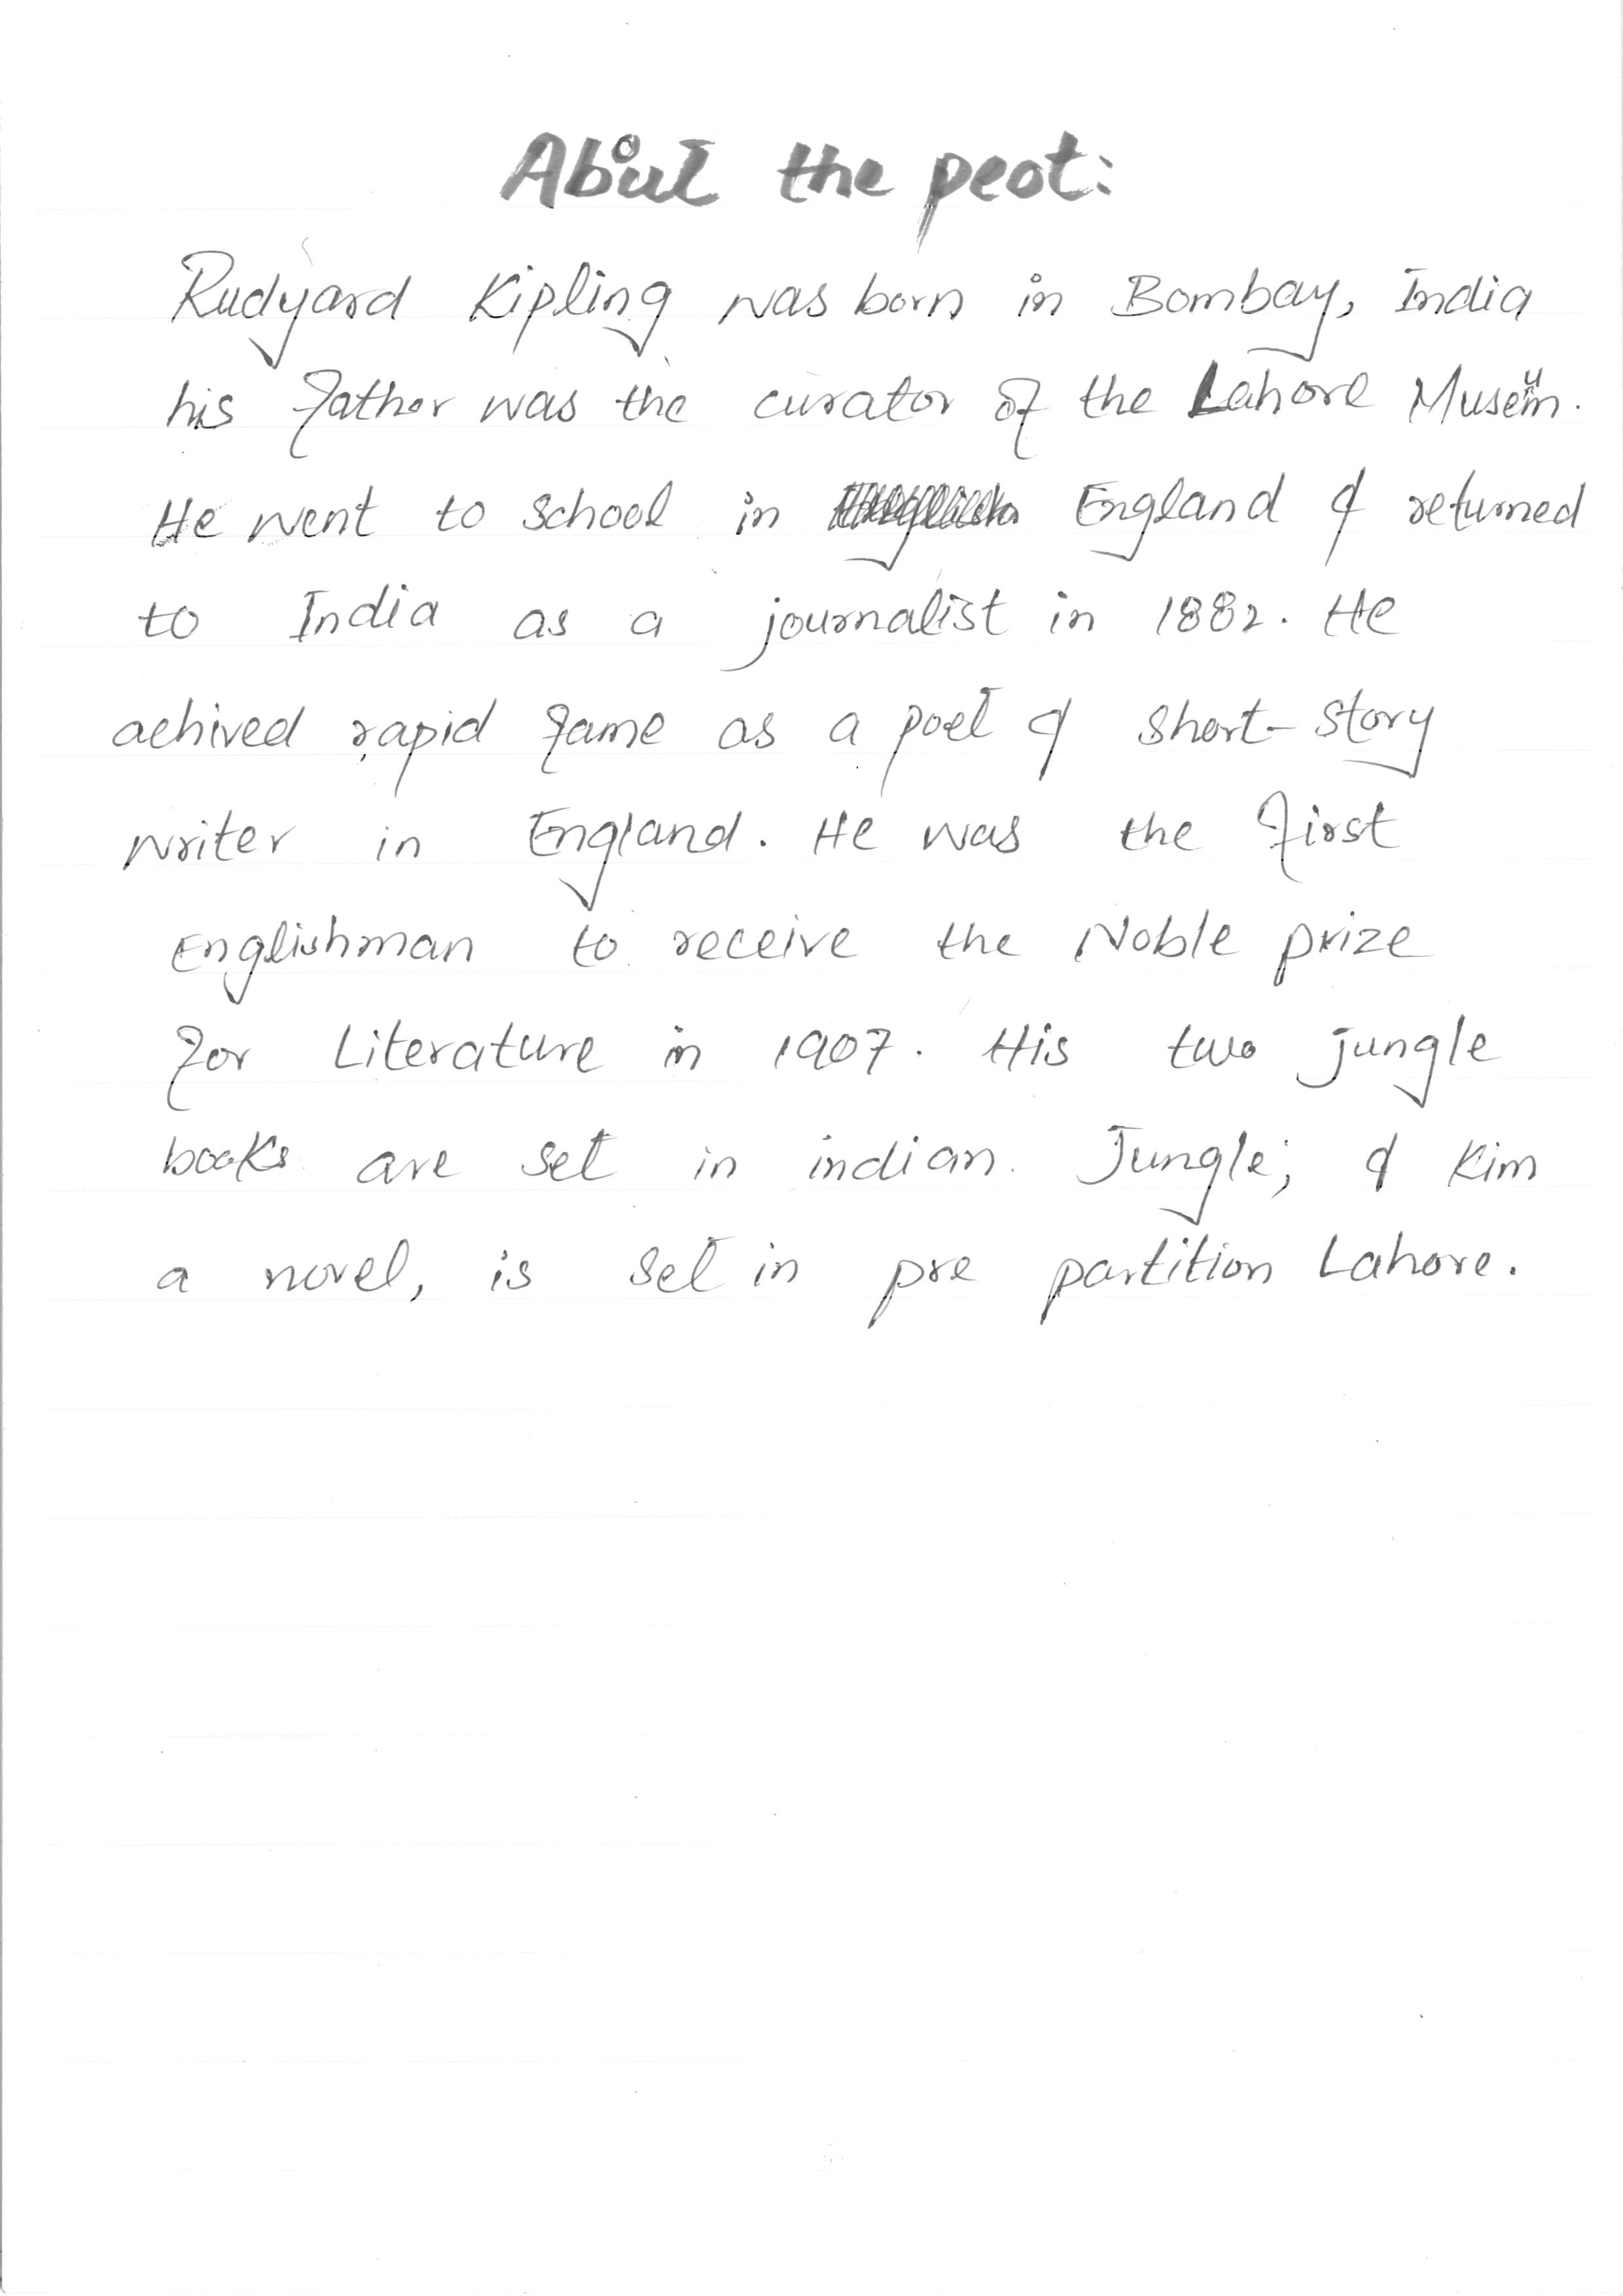 About the peot:
Rudyard Kipling was born in Bombay, India
his father was the curator of the Lahore Museum.
He went to school in England & returned
to India as a journalist in 1882. He
achived rapid fame as a poet & short-story
writer in England. He was the first
Englishman to receive the Noble prize
for Literature in 1907. His two jungle
books are set in indian Jungle; & Kim
a novel, is set in pre partition Lahore.